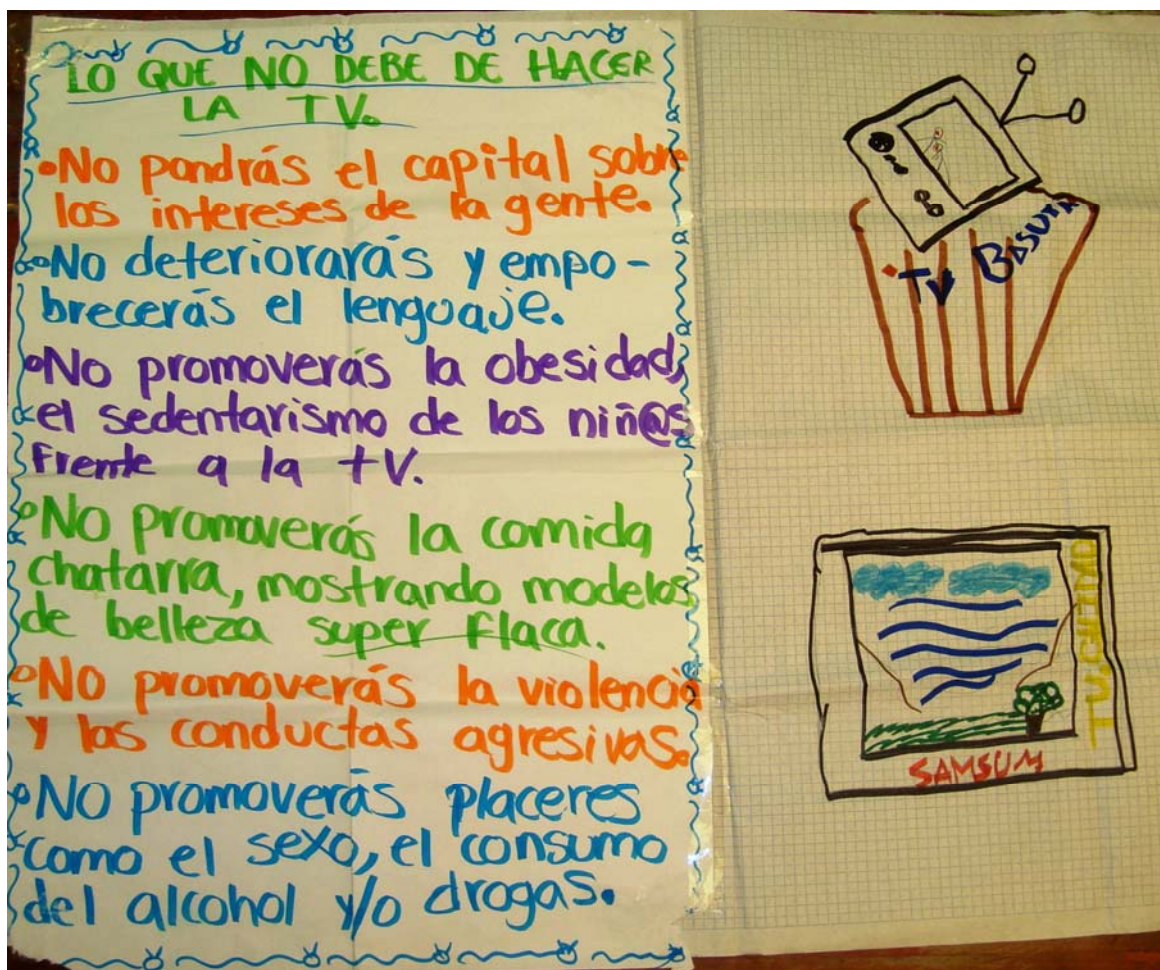 LO QUE NO DEBE DE HACER
LA TV.
•No pondrás el capital sobre
los intereses de la gente.
•No deteriorarás y empo-
brecerás el lenguaje.
•No promoverás la obesidad,
el sedentarismo de los niñ@s
frente a la tv.
•No promoverás la comida
chatarra, mostrando modelos
de belleza super flaca.
•NO promoverás la violencia
y las conductas agresivas.
•NO promoverás placeres
como el sexo, el consumo
del alcohol y/o drogas.
TV BASURA
TV. CALIDAD
SAMSUM